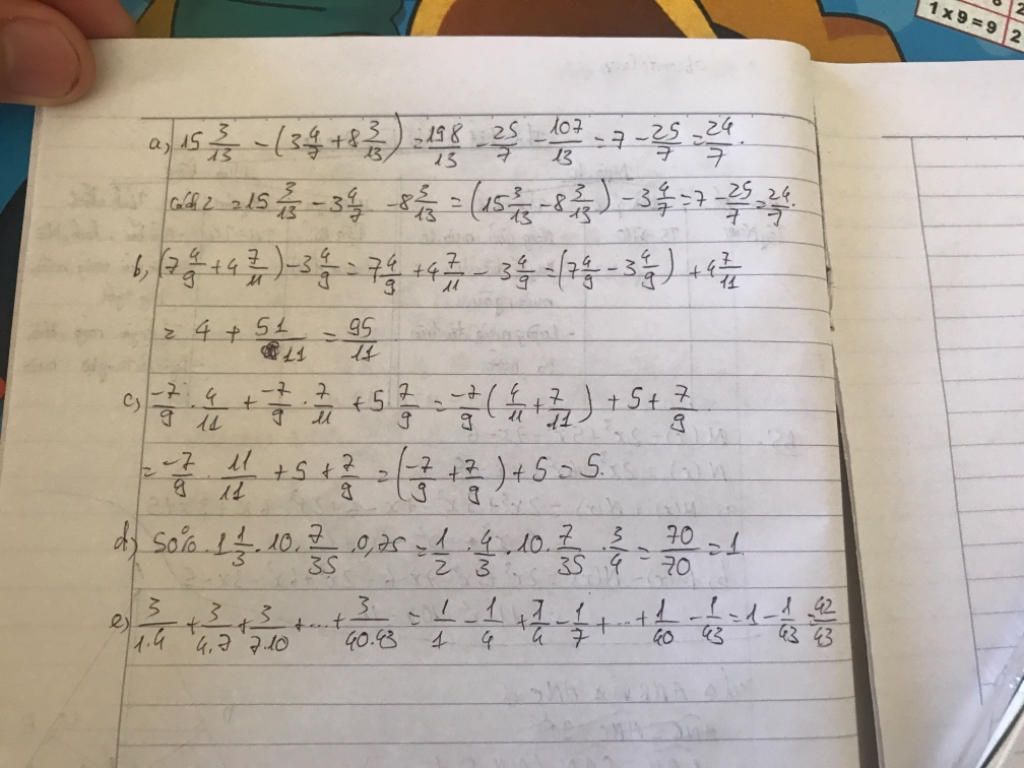 1 x 9 = 9 2
a) 15 3/13 - (3 4/7 + 8 3/13) = 198/13 - 25/7 - 107/13 = 7 - 25/7 = 24/7.
cách 2 = 15 3/13 - 3 4/7 - 8 3/13 = (15 3/13 - 8 3/13) - 3 4/7 = 7 - 25/7 = 24/7.
b, (7 4/9 + 4 7/11) - 3 4/9 = 7 4/9 + 4 7/11 - 3 4/9 = (7 4/9 - 3 4/9) + 4 7/11
= 4 + 51/11 = 95/11
c, -7/9 . 4/11 + -7/9 . 7/11 + 5 7/9 = -7/9 (4/11 + 7/11) + 5 + 7/9
= -7/9 . 11/11 + 5 + 7/9 = (-7/9 + 7/9) + 5 = 5.
d) 50% . 1 1/3 . 10 . 7/35 . 0,75 = 1/2 . 4/3 . 10 . 7/35 . 3/4 = 70/70 = 1
e) 3/1.4 + 3/4.7 + 3/7.10 + ... + 3/40.43 = 1/1 - 1/4 + 1/4 - 1/7 + ... + 1/40 - 1/43 = 1 - 1/43 = 42/43